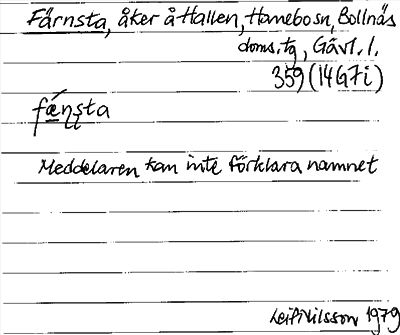 Färnsta, åker å Hallen, Hanebo sn, Bollnäs
doms. tg, Gävl. l.
359 (14G7i)
fǽṇṣṭa
Meddelaren kan inte förklara namnet
Leif Nilsson 1979